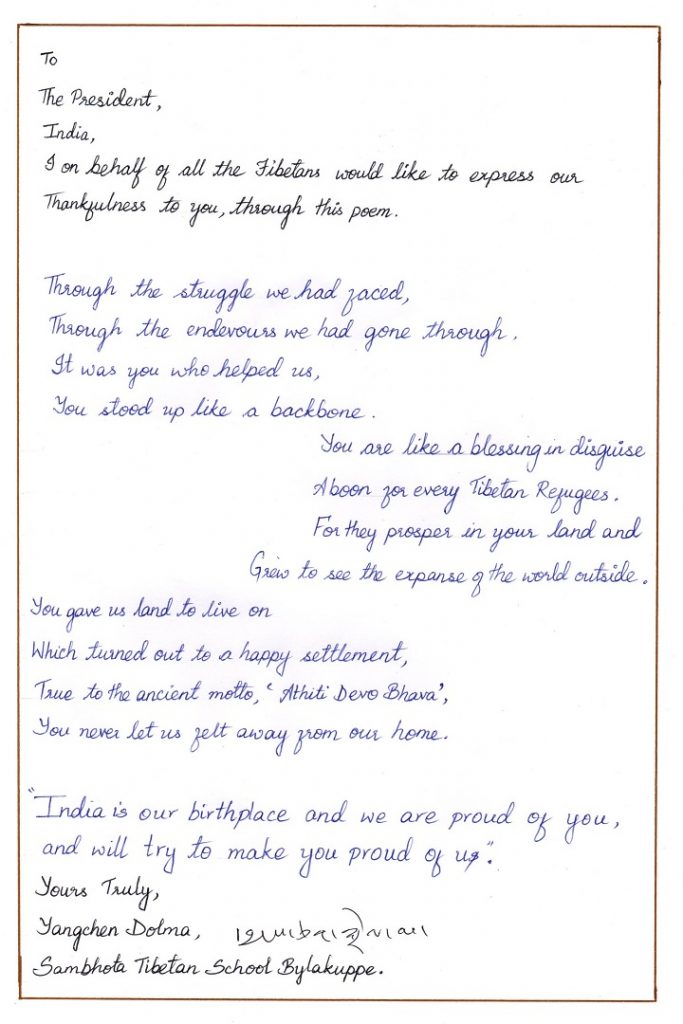 To
The President,
India,
I on behalf of all the Tibetans would like to express our
Thankfulness to you, through this poem.
Through the struggle we had faced,
Through the endevours we had gone through.
It was you who helped us,
You stood up like a backbone.
You are like a blessing in disguise
A boon for every Tibetan Refugees.
For they prosper in your land and
Grew to see the expanse of the world outside.
You gave us land to live on
Which turned out to a happy settlement,
True to the ancient motto, ‘Athiti Devo Bhava’,
You never let us felt away from our home.
"India is our birthplace and we are proud of you,
and will try to make you proud of us".
Yours Truly,
Yangchen Dolma,
Sambhota Tibetan School Bylakuppe.